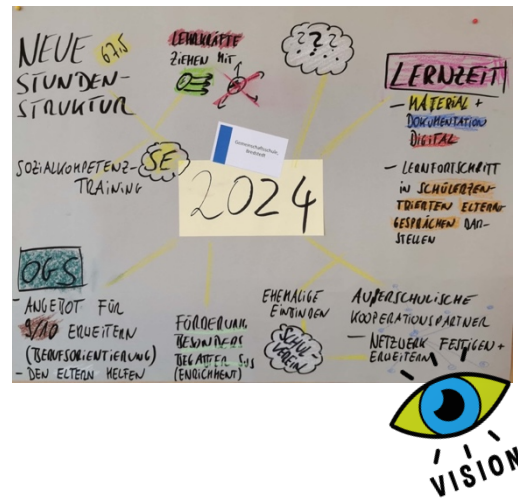 NEUE 67,5
STUNDEN-
STRUKTUR
LEHRKRÄFTE
ZIEHEN MIT
???
LERNZEIT
- MATERIAL +
DOKUMENTATION
DIGITAL
- LERNFORTSCHRITT
IN SCHÜLERZEN-
TRIERTEN ELTERN-
GESPRÄCHEN DAR-
STELLEN
SOZIALKOMPETENZ-
TRAINING
SE
Gemeinschaftsschule,
2024
OGS
- ANGEBOT FÜR
9/10 ERWEITERN
(BERUFSORIENTIERUNG)
- DEN ELTERN HELFEN
FÖRDERUNG
BESONDERS
BEGABTER SUS
(ENRICHMENT)
EHEMALIGE
EINBINDEN
SCHUL-
VEREIN
AUßERSCHULISCHE
KOOPERATIONSPARTNER
- NETZWERK FESTIGEN +
ERWEITERN
VISION